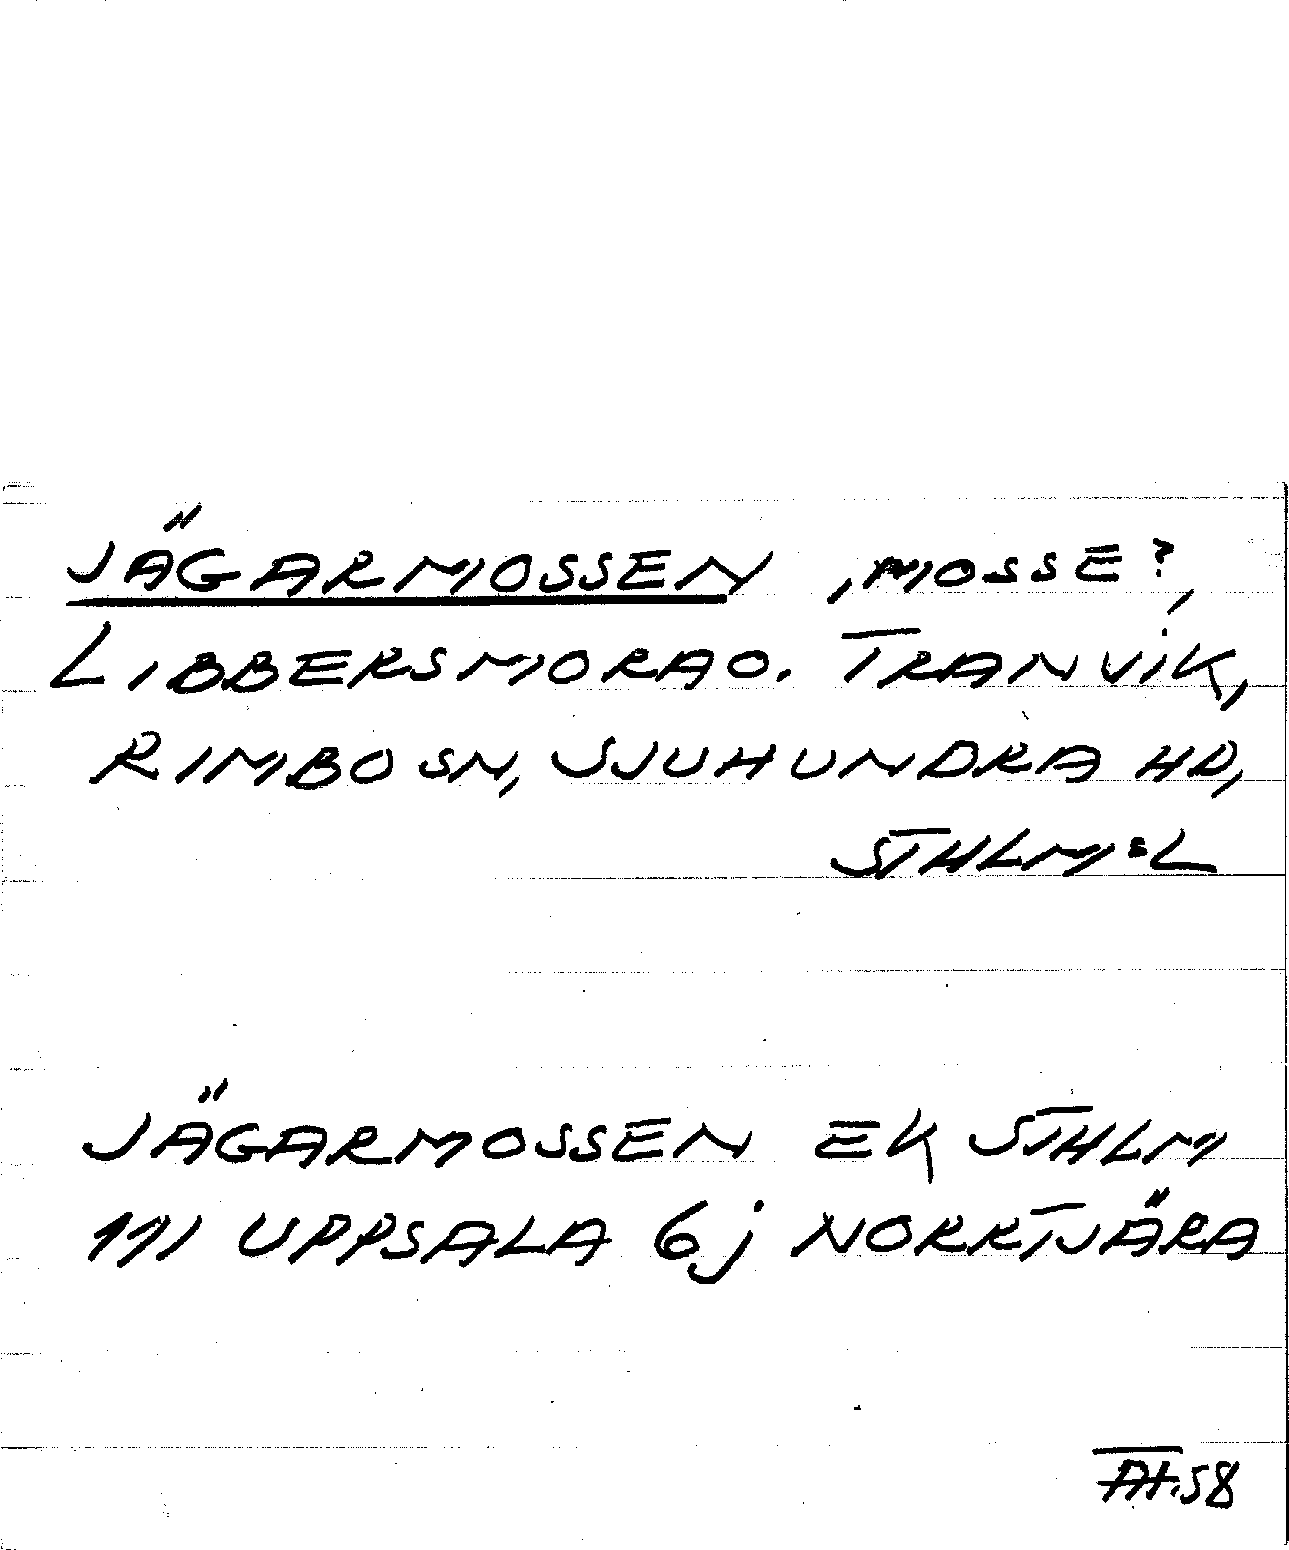 JÄGARMOSSEN, MOSSE?,
LIBBERSMORA O. TRANVIK,
RIMBO SN, SJUHUNDRA HD,
STHLM:L
JÄGARMOSSEN EK STHLM
111 UPPSALA 6j NORRTJÄRA
58